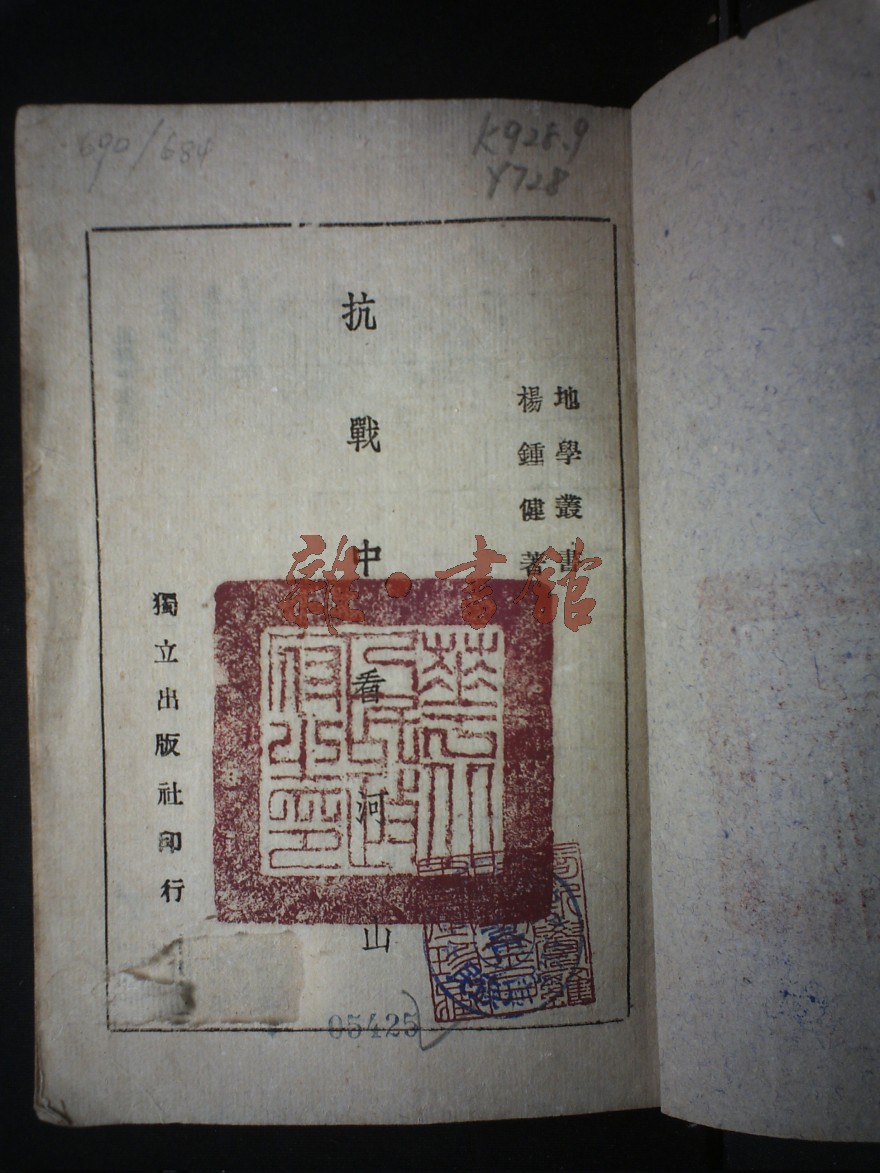 690/684
K928.9
Y728
地學叢書
楊鍾健著
抗戰中看河山
獨立出版社印行
雜·書館
05425